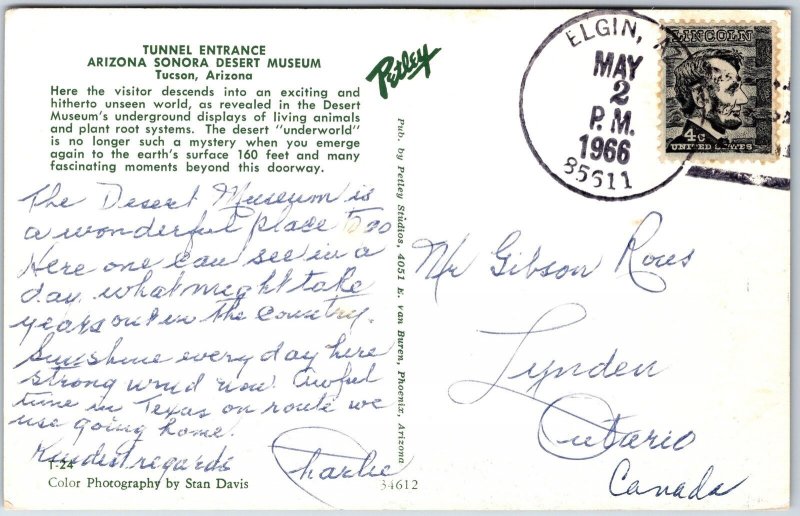 TUNNEL ENTRANCE
ARIZONA SONORA DESERT MUSEUM
Tucson, Arizona
Here the visitor descends into an exciting and
hitherto unseen world, as revealed in the Desert
Museum's underground displays of living animals
and plant root systems. The desert "underworld"
is no longer such a mystery when you emerge
again to the earth's surface 160 feet and many
fascinating moments beyond this doorway.
The Desert Museum is
a wonderful place to go
Here one can see in a
day what might take
years out in the country.
Sunshine every day here
strong wind now. Awful
time in Texas on route we
use going home.
Kindest regards Charlie
T-24
Color Photography by Stan Davis
34612
Petley
Pub. by Petley Studios, 4051 E. Van Buren, Phoenix, Arizona
ELGIN, AZ
MAY
2
P.M.
1966
85611
LINCOLN
4c
UNITED STATES
Mr Gibson Rous
Lynden
Ontario
Canada